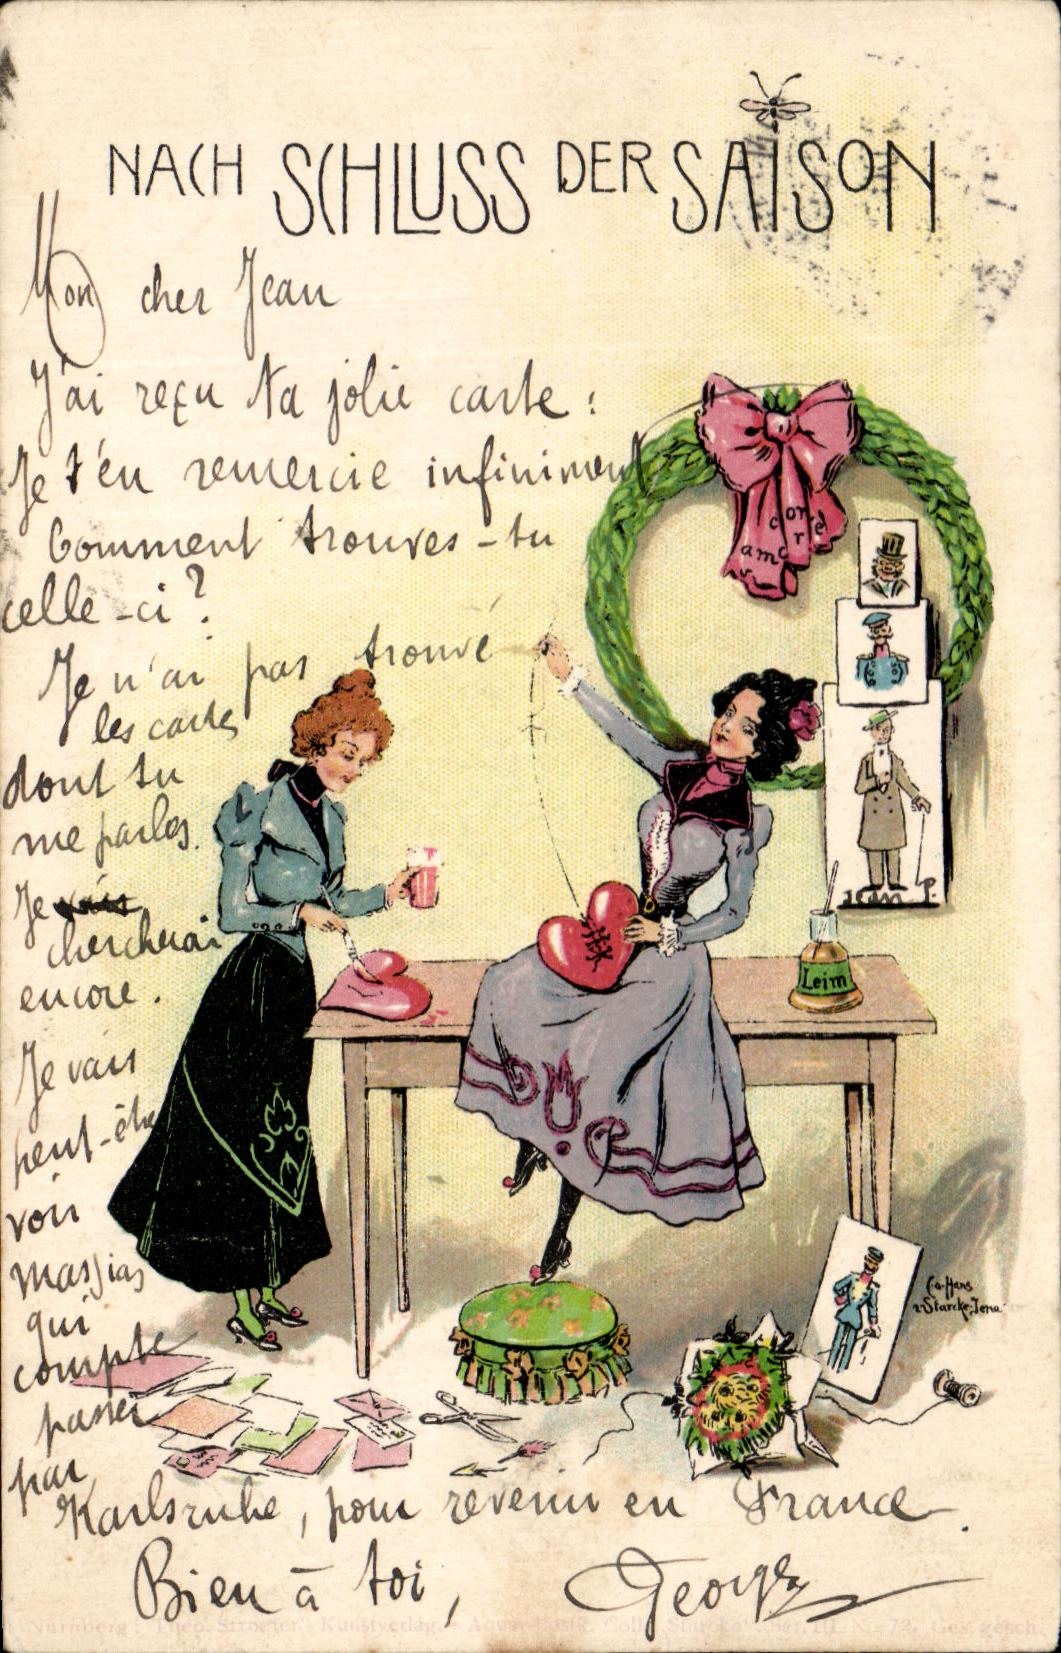 NACH SCHLUSS DER SAISON
Mon cher Jean
J'ai reçu ta jolie carte :
Je t'en remercie infiniment
Comment trouves-tu
celle-ci ?
Je n'ai pas trouvé
les cartes
dont tu
me parles.
Je vais
chercherai
encore.
Je vais
peut-être
voir
Massias
qui
compte
passer
par
Karlsruhe, pour revenir en France.
Bien à toi, Georges
con
amo
Jean P.
Leim
C. a. Hans
v Starcke, Jena
Nürnberg: Theo. Stroefer's Kunstverlag. - Aqua. Coll. Starcke Ser. III. N. 72. Ges. gesch.